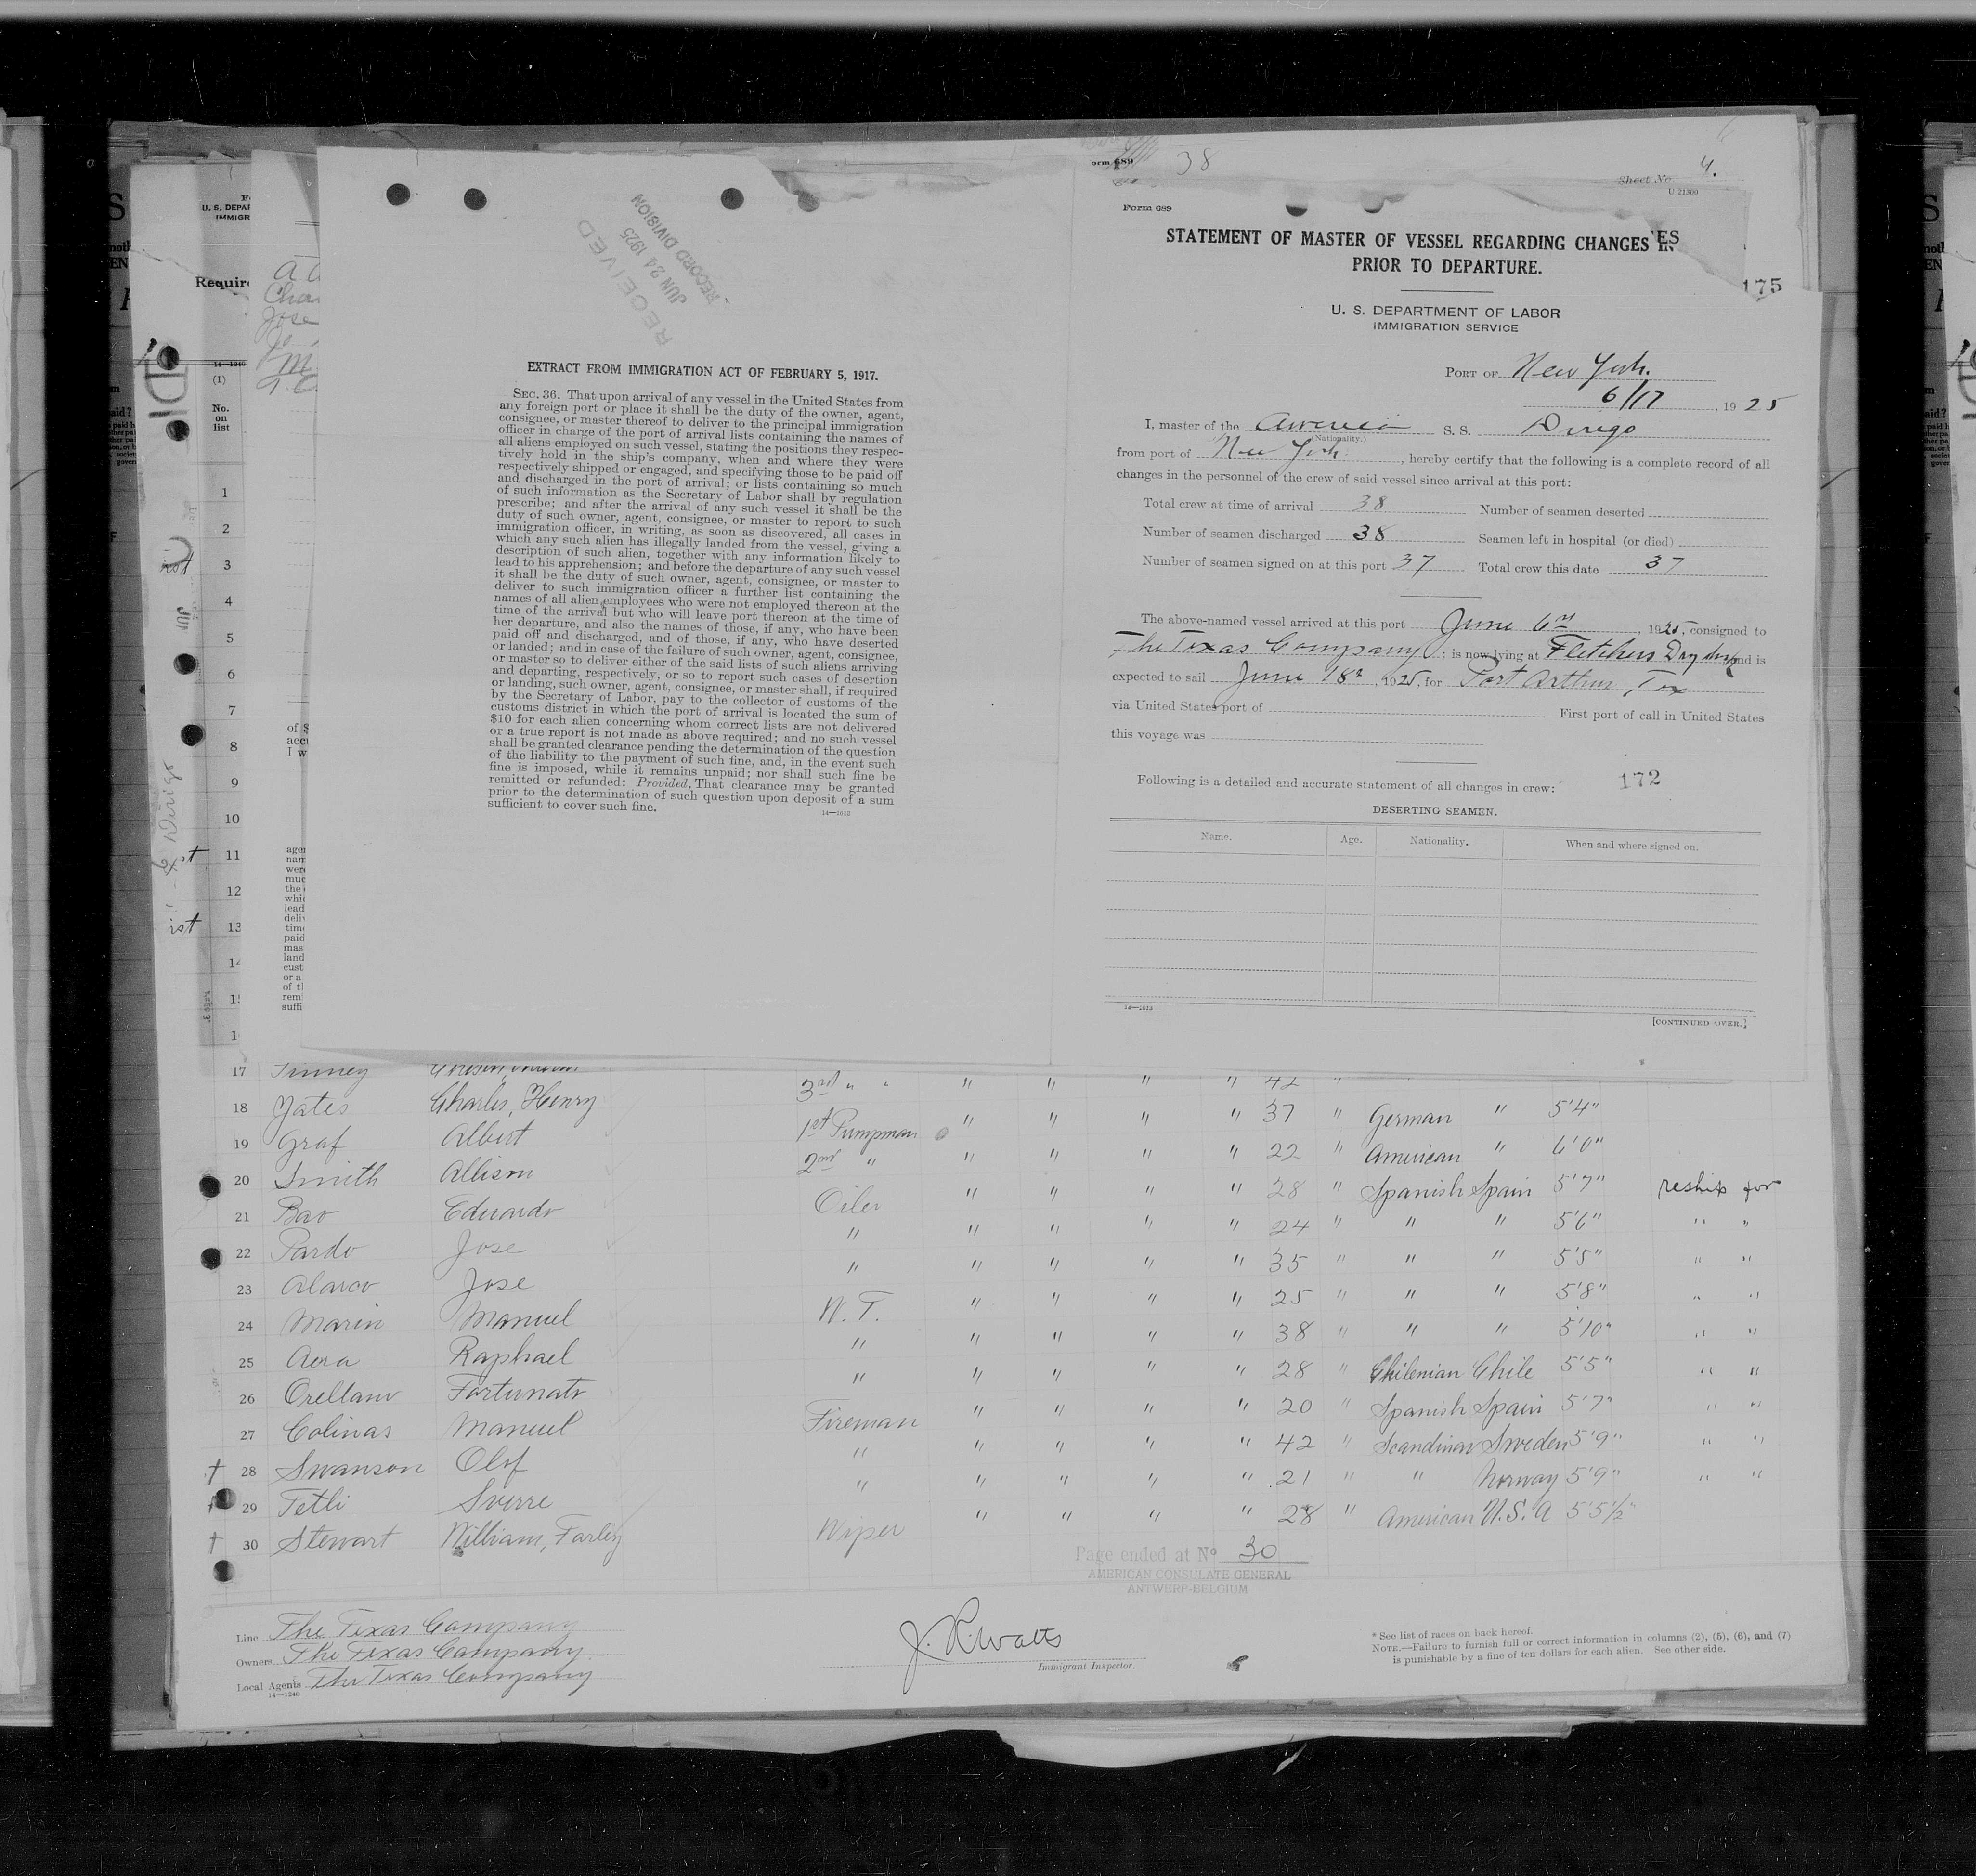 RECEIVED
JUN 24 1925
RECORD DIVISION
EXTRACT FROM IMMIGRATION ACT OF FEBRUARY 5, 1917.
SEC. 36. That upon arrival of any vessel in the United States from
any foreign port or place it shall be the duty of the owner, agent,
consignee, or master thereof to deliver to the principal immigration
officer in charge of the port of arrival lists containing the names of
all aliens employed on such vessel, stating the positions they respec-
tively hold in the ship's company, when and where they were
respectively shipped or engaged, and specifying those to be paid off
and discharged in the port of arrival; or lists containing so much
of such information as the Secretary of Labor shall by regulation
prescribe; and after the arrival of any such vessel it shall be the
duty of such owner, agent, consignee, or master to report to such
immigration officer, in writing, as soon as discovered, all cases in
which any such alien has illegally landed from the vessel, giving a
description of such alien, together with any information likely to
lead to his apprehension; and before the departure of any such vessel
it shall be the duty of such owner, agent, consignee, or master to
deliver to such immigration officer a further list containing the
names of all alien employees who were not employed thereon at the
time of the arrival but who will leave port thereon at the time of
her departure, and also the names of those, if any, who have been
paid off and discharged, and of those, if any, who have deserted
or landed; and in case of the failure of such owner, agent, consignee,
or master so to deliver either of the said lists of such aliens arriving
and departing, respectively, or so to report such cases of desertion
or landing, such owner, agent, consignee, or master shall, if required
by the Secretary of Labor, pay to the collector of customs of the
customs district in which the port of arrival is located the sum of
$10 for each alien concerning whom correct lists are not delivered
or a true report is not made as above required; and no such vessel
shall be granted clearance pending the determination of the question
of the liability to the payment of such fine, and, in the event such
fine is imposed, while it remains unpaid; nor shall such fine be
remitted or refunded: Provided, That clearance may be granted
prior to the determination of such question upon deposit of a sum
sufficient to cover such fine.
14—1613
38
Sheet No. 4.
U 21300
Form 689
STATEMENT OF MASTER OF VESSEL REGARDING CHANGES IN
PRIOR TO DEPARTURE.
175
U. S. DEPARTMENT OF LABOR
IMMIGRATION SERVICE
PORT OF New York.
6/17, 1925
I, master of the America S. S. Dirigo
(Nationality.)
from port of New York, hereby certify that the following is a complete record of all
changes in the personnel of the crew of said vessel since arrival at this port:
Total crew at time of arrival 38 Number of seamen deserted
Number of seamen discharged 38 Seamen left in hospital (or died)
Number of seamen signed on at this port 37 Total crew this date 37
The above-named vessel arrived at this port June 6th, 1925, consigned to
The Texas Company; is now lying at Fletchers Dry dock and is
expected to sail June 18th 1925, for Port Arthur, Tex
via United States port of First port of call in United States
this voyage was
Following is a detailed and accurate statement of all changes in crew:
172
DESERTING SEAMEN.
Name. Age. Nationality. When and where signed on.
14—1613
[CONTINUED OVER.]
No. on list
17 3rd " " " " " " 42 "
18 Yates Charles, Henry 1st Pumpman " " " " 37 " German " 5'4"
19 Graf Albert 2nd " " " " " 22 " American " 6'0"
20 Smith Allison Oiler " " " " 28 " Spanish Spain 5'7" reship for
21 Bao Eduardo " " " " " 24 " " " 5'6" " "
22 Pardo Jose " " " " " 35 " " " 5'5" " "
23 Alarco Jose W. T. " " " " 25 " " " 5'8" " "
24 Marin Manuel " " " " " 38 " " " 5'10" " "
25 Raphael " " " " " 28 " Chilenian Chile 5'5" " "
26 Orellano Fortunato Fireman " " " " 20 " Spanish Spain 5'7" " "
27 Colinas Manuel " " " " " 42 " Scandinav Sweden 5'9" " "
28 Swanson Olof " " " " " 21 " " Norway 5'9" " "
29 Tetli Sverre Wiper " " " " 28 " American U.S.A 5'5½"
30 Stewart William, Farley
Page ended at No 30
AMERICAN CONSULATE GENERAL
ANTWERP-BELGIUM
Line The Texas Company
Owners The Texas Company
Local Agents The Texas Company
14—1240
J. R. Watts
Immigrant Inspector.
* See list of races on back hereof.
NOTE.—Failure to furnish full or correct information in columns (2), (5), (6), and (7)
is punishable by a fine of ten dollars for each alien. See other side.